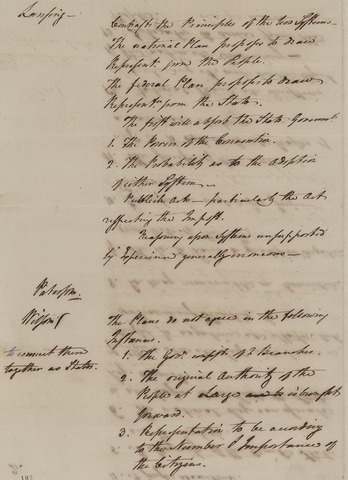 Lansing—
Contrasts the Principles of the two Systems—
The national Plan proposes to draw
Represent. from the People.
The federal Plan proposes to draw
Represent. from the States.
The first will absorb the State Governmts.
1. The Powers of the Convention.
2. The Probability as to the Adoption
of either System—
Publick Acts— particularly the Act
respecting the Impost.
Reasoning upon Systems unsupported
by Experience generally erroneous—
Paterson.
Wilson
The Plans do not agree in the following
Instances.
1. The Govt. consist of 2 Branches.
to connect them
together as States.
2. The original Authority of the
People at Large is brought
forward.
3. Representation to be according
to the Number & Importance of
the Citizens.
193